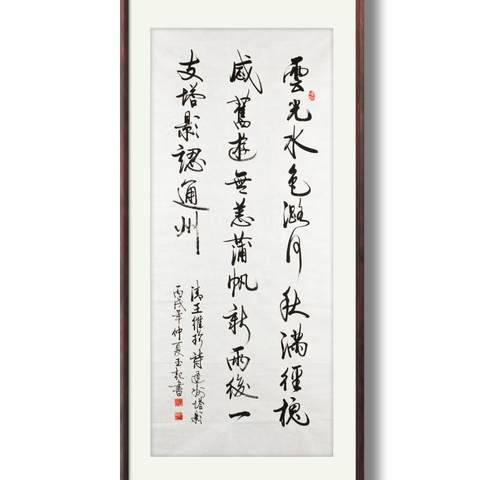 雲光水色潞河秋滿徑槐
感舊遊無恙蒲帆新雨後一
支塔影認通州
清王維珍詩通州塔影
丙戌年仲夏玉書